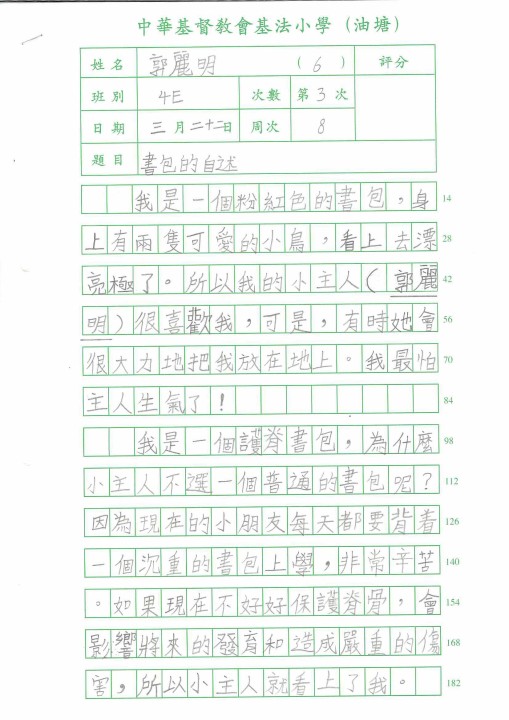 中華基督教會基法小學（油塘）
姓名 郭麗明 （6） 評分
班別 4E 次數 第3次
日期 三月二十二日 周次 8
題目 書包的自述
我是一個粉紅色的書包，身 14
上有兩隻可愛的小鳥，看上去漂 28
亮極了。所以我的小主人（郭麗 42
明）很喜歡我，可是，有時她會 56
很大力地把我放在地上。我最怕 70
主人生氣了！ 84
我是一個護脊書包，為什麼 98
小主人不選一個普通的書包呢？ 112
因為現在的小朋友每天都要背着 126
一個沉重的書包上學，非常辛苦 140
。如果現在不好好保護脊骨，會 154
影響將來的發育和造成嚴重的傷 168
害，所以小主人就看上了我。 182